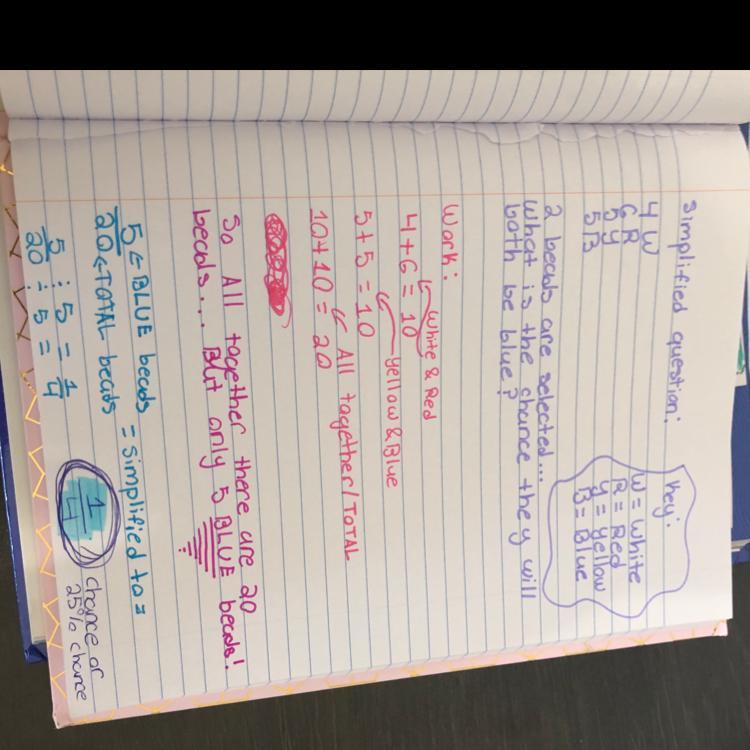 simplified question:
4 W
6 R
5 y
5 B
Key:
W = White
R = Red
y = yellow
B = Blue
2 beads are selected...
What is the chance they will
both be blue?
Work:
White & Red
4 + 6 = 10
yellow & Blue
5 + 5 = 10
All together/TOTAL
10 + 10 = 20
So All together there are 20
beads... But only 5 BLUE beads!
5 ← BLUE beads = simplified to =
20 ← TOTAL beads
5 ÷ 5 = 1
20 ÷ 5 = 4
1/4 chance or
25% chance